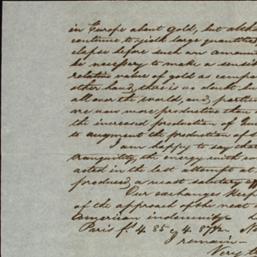 in Europe about Gold, but altho
continue to reich large quantities
elapse before such an amount
be necessary to make a sensib
relative value of gold as compar
other hand, there is no doubt bu
all over the world, and, partic
are now more productive than
the increased production of
to augment the production of
I am happy to say that
tranquility, the energy with
acted in the last attempt at
produced a most salutary eff
Our exchanges keep
of the approach of the next
American indemnity.
Paris f. 4.85 @ 4.87½
I remain
Very